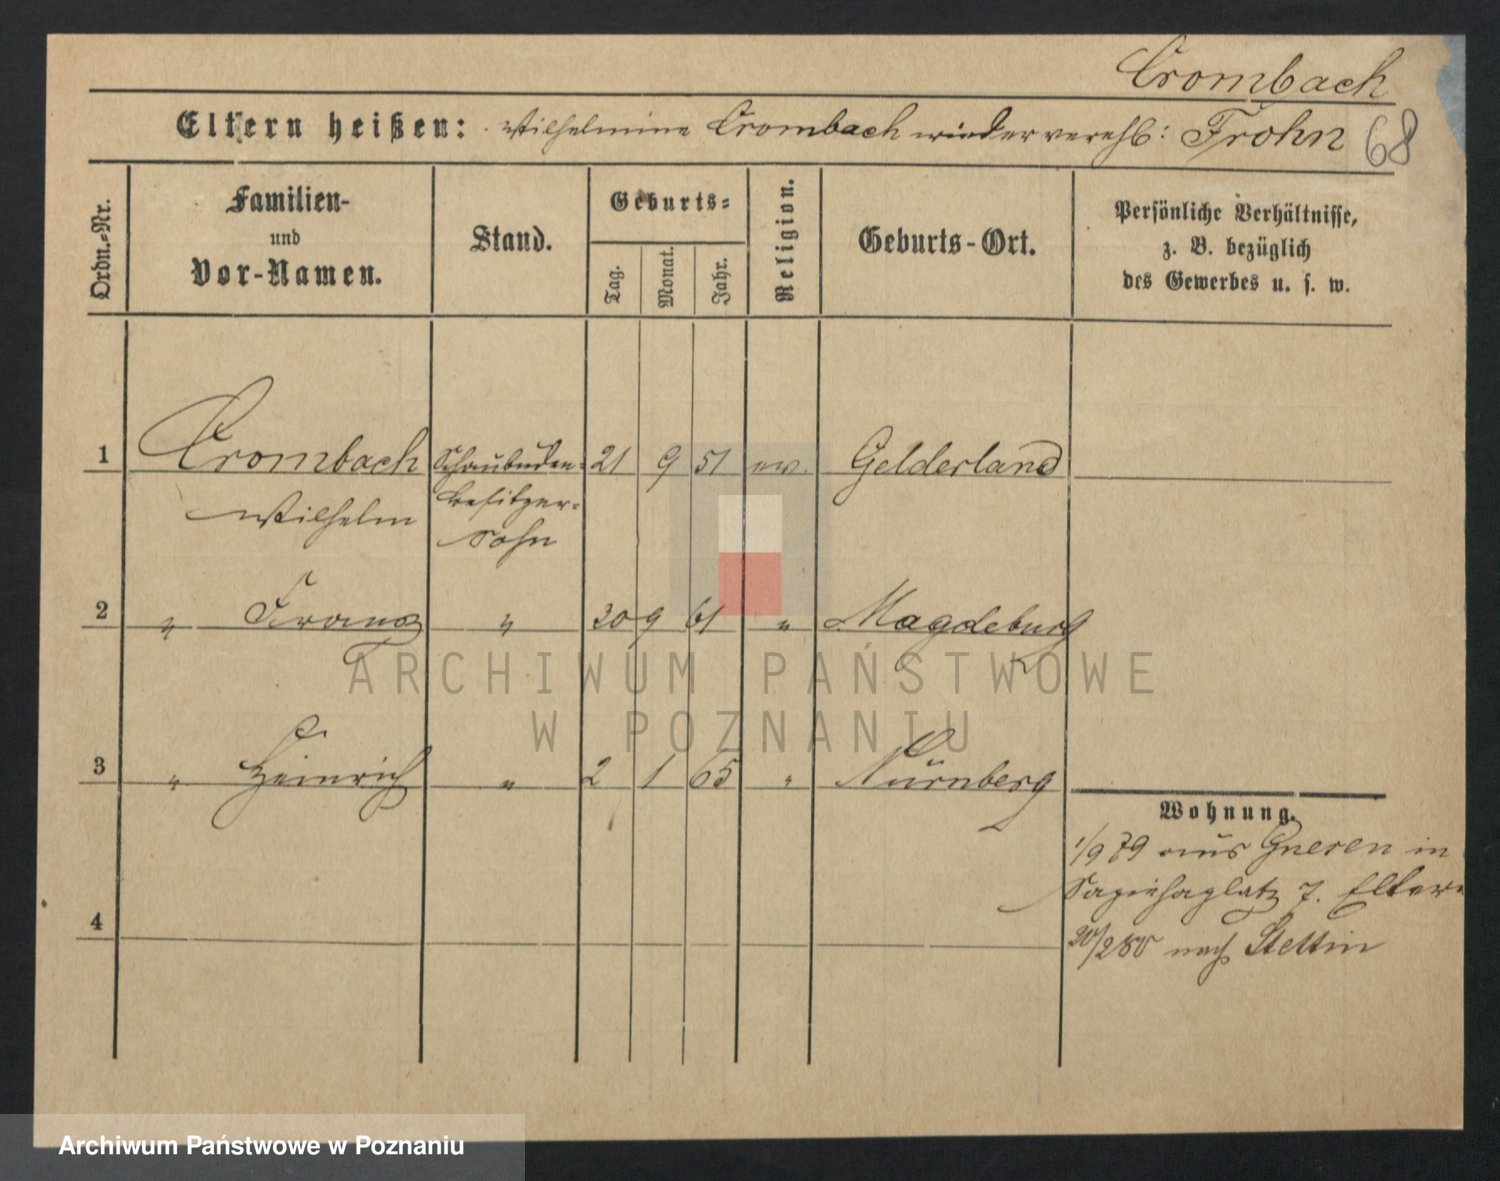 Crombach
Eltern heißen: Wilhelmine Crombach wieder verehl: Frohn
68
Ordn.-Nr.
Familien-
und
Vor-Namen.
Stand.
Geburts-
Tag.
Monat.
Jahr.
Religion.
Geburts-Ort.
Persönliche Verhältnisse,
z. B. bezüglich
des Gewerbes u. s. w.
1 Crombach Schaubuden- 21 9 51 ev. Gelderland
Wilhelm besitzer-
Sohn
2 " Franz " 20 9 61 " Magdeburg
3 " Heinrich " 2 1 65 " Nürnberg
Wohnung.
1/9 79 aus Gnesen in
Sapiehaplatz 7. Eltern
4
20/2 80 nach Stettin
ARCHIWUM PAŃSTWOWE
W POZNANIU
Archiwum Państwowe w Poznaniu